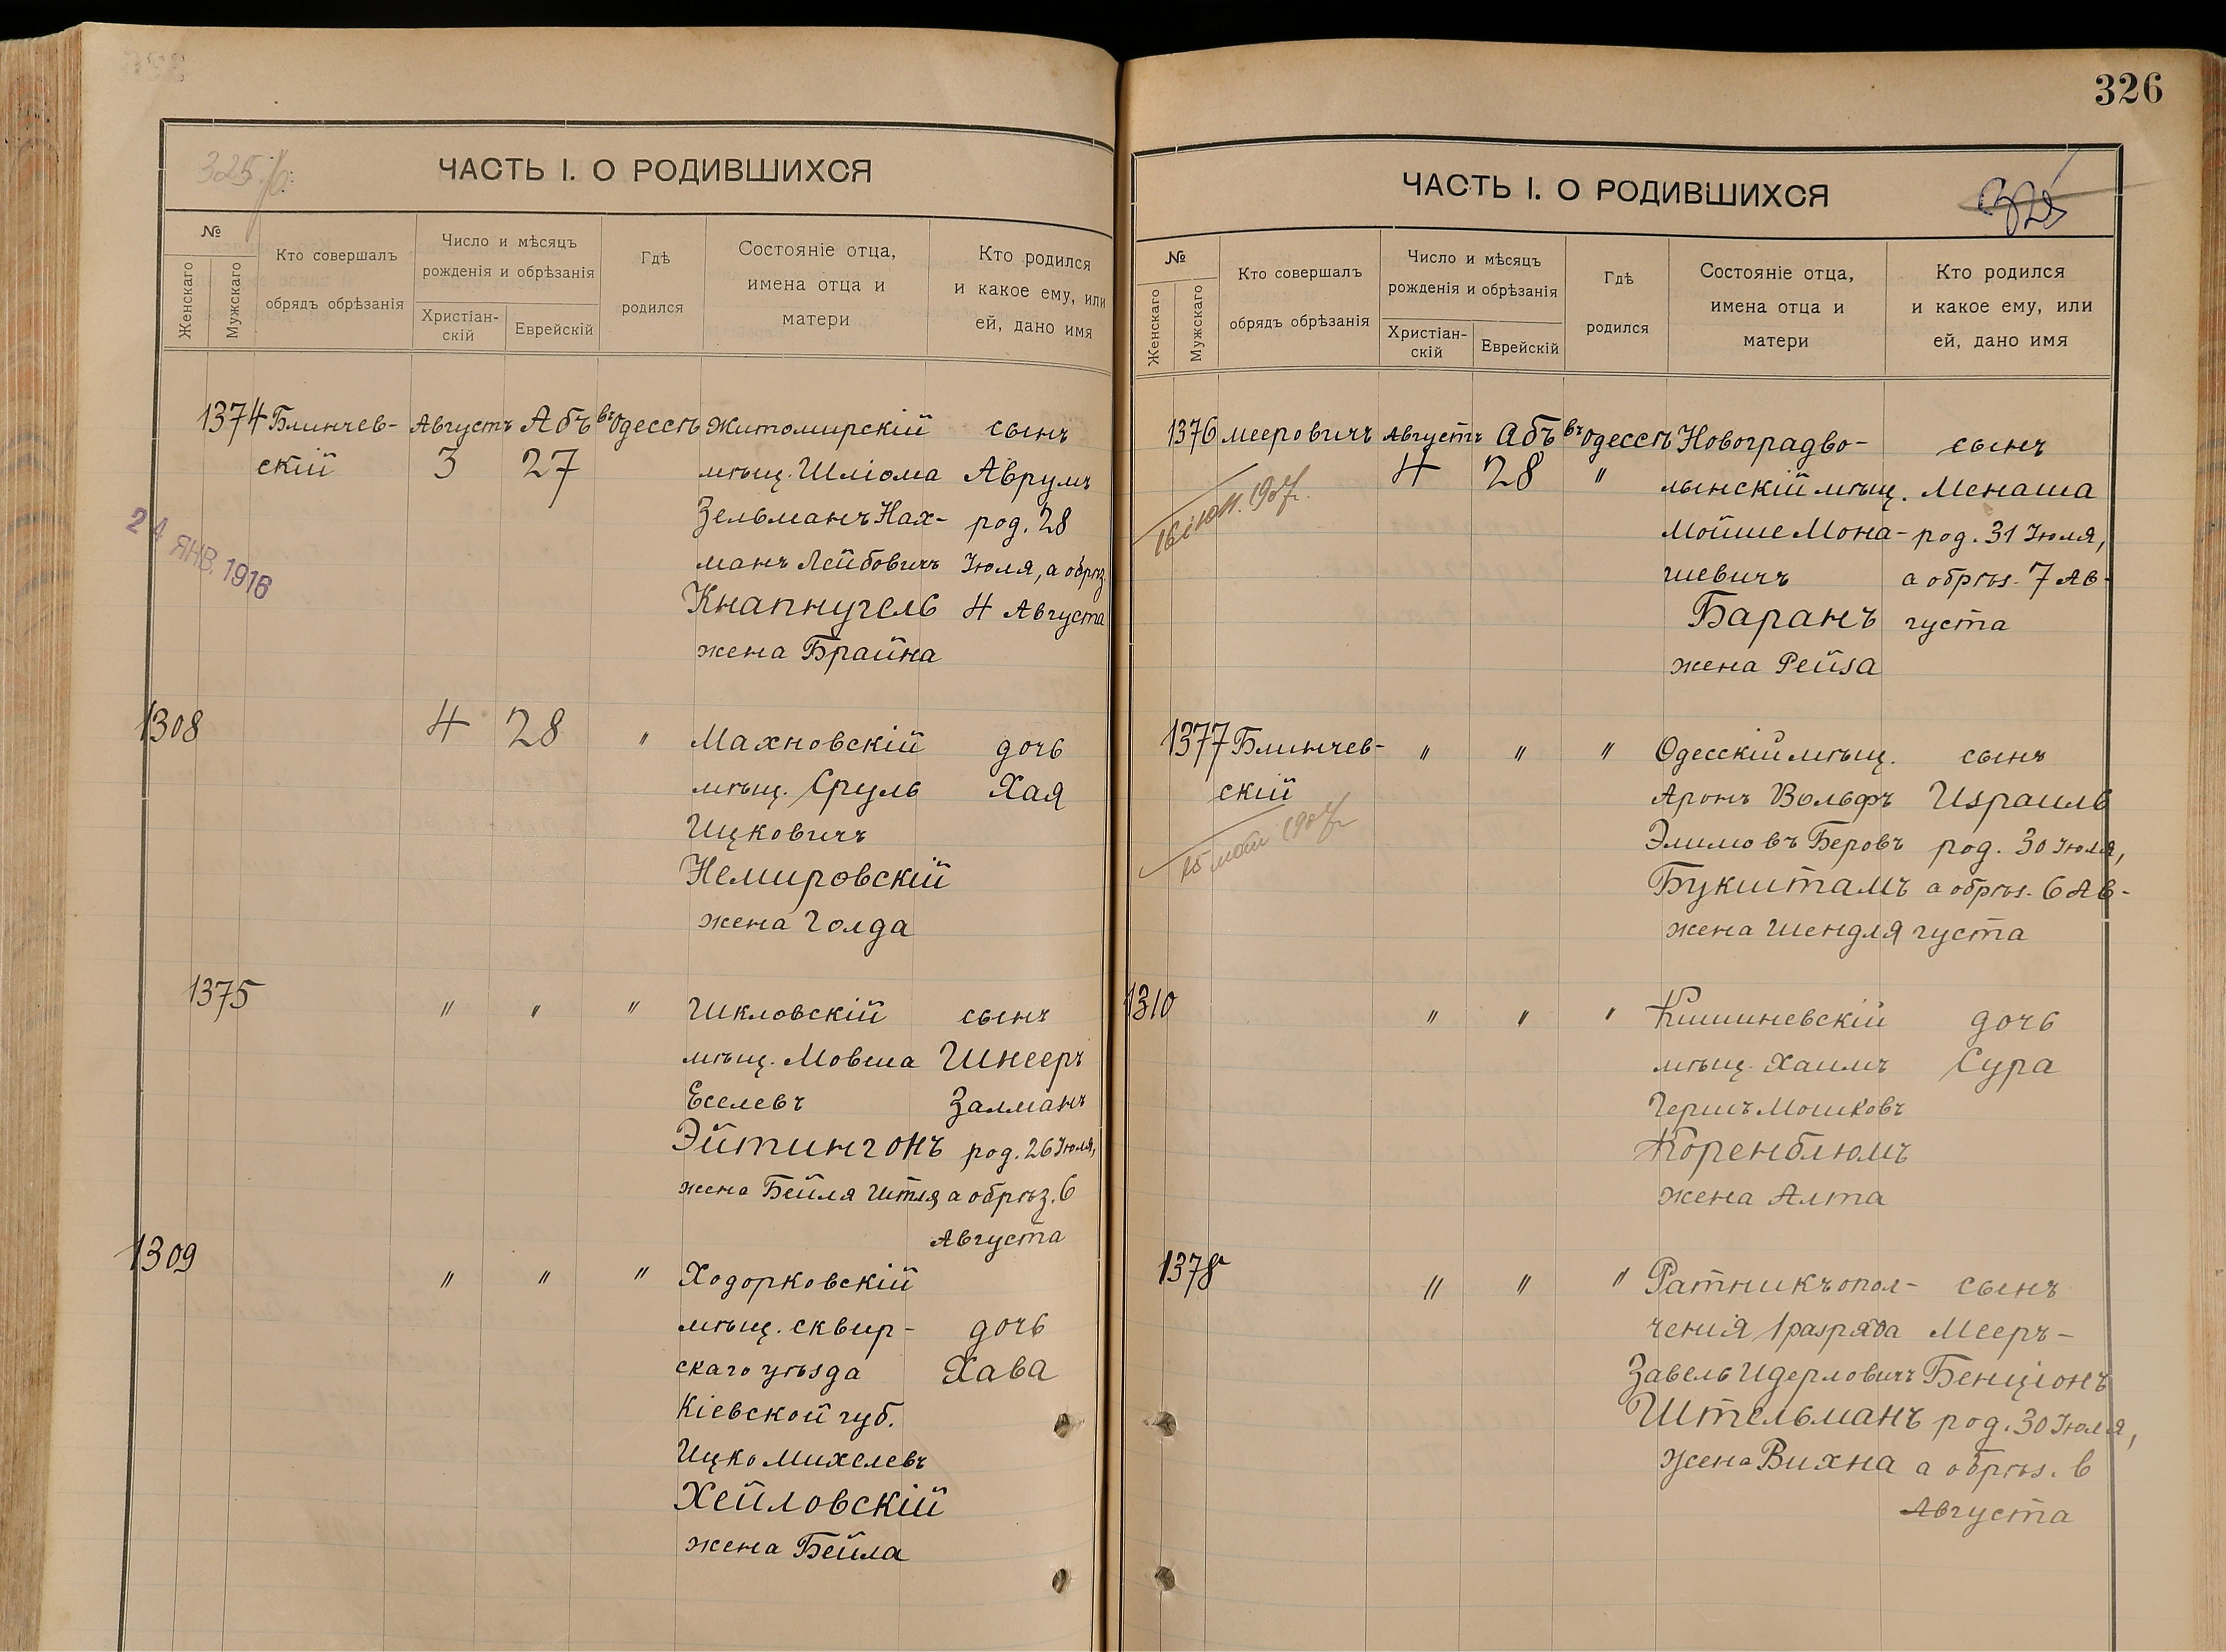 326
325 об.
ЧАСТЬ I. О РОДИВШИХСЯ
№
Женскаго
Мужскаго
Кто совершалъ
обрядъ обрѣзанія
Число и мѣсяцъ
рожденія и обрѣзанія
Христіан-
скій
Еврейскій
Гдѣ
родился
Состояніе отца,
имена отца и
матери
Кто родился
и какое ему, или
ей, дано имя
1374 Блинчев- Августъ Абъ въ Одессѣ Житомирскій сынъ
скій 3 27 мѣщ. Шліома Аврумъ
Зельманъ Нах- род. 28
манъ Лейбовичъ Іюля, а обрѣз.
Кнапнугель 4 Августа
жена Брайна
24 ЯНВ. 1916
1308 4 28 " Махновскій дочь
мѣщ. Сруль Хая
Ицковичъ
Немировскій
жена Голда
1375 " " " Шкловскій сынъ
мѣщ. Мовша Шнееръ
Еселевъ Залманъ
Эйтингонъ род. 26 Іюля,
жена Бейля Итля, а обрѣз. 6
Августа
1309 " " " Ходорковскій
мѣщ. сквир- дочь
скаго уѣзда Хава
Кіевской губ.
Ицко Михелевъ
Хейловскій
жена Бейла
ЧАСТЬ I. О РОДИВШИХСЯ
325
№
Женскаго
Мужскаго
Кто совершалъ
обрядъ обрѣзанія
Число и мѣсяцъ
рожденія и обрѣзанія
Христіан-
скій
Еврейскій
Гдѣ
родился
Состояніе отца,
имена отца и
матери
Кто родился
и какое ему, или
ей, дано имя
1376 Мееровичъ Августъ Абъ въ Одессѣ Новоградво- сынъ
4 28 " лынскій мѣщ. Менаша
Мойше Мона- род. 31 Іюля,
шевичъ а обрѣз. 7 Ав-
Баранъ густа
жена Рейза
1377 Блинчев- " " " Одесскій мѣщ. сынъ
скій Аронъ Вольфъ Израиль
Элимовъ Беровъ род. 30 Іюля,
Букштамъ а обрѣз. 6 Ав-
жена Шендля густа
1310 " " " Кишиневскій дочь
мѣщ. Хаимъ Сура
Гершъ Мошковъ
Коренблюмъ
жена Алта
1378 " " " Ратникъ опол- сынъ
ченія 1 разряда Мееръ-
Завель Идерловичъ Бенціонъ
Штельманъ род. 30 Іюля,
жена Вихна а обрѣз. 6
Августа